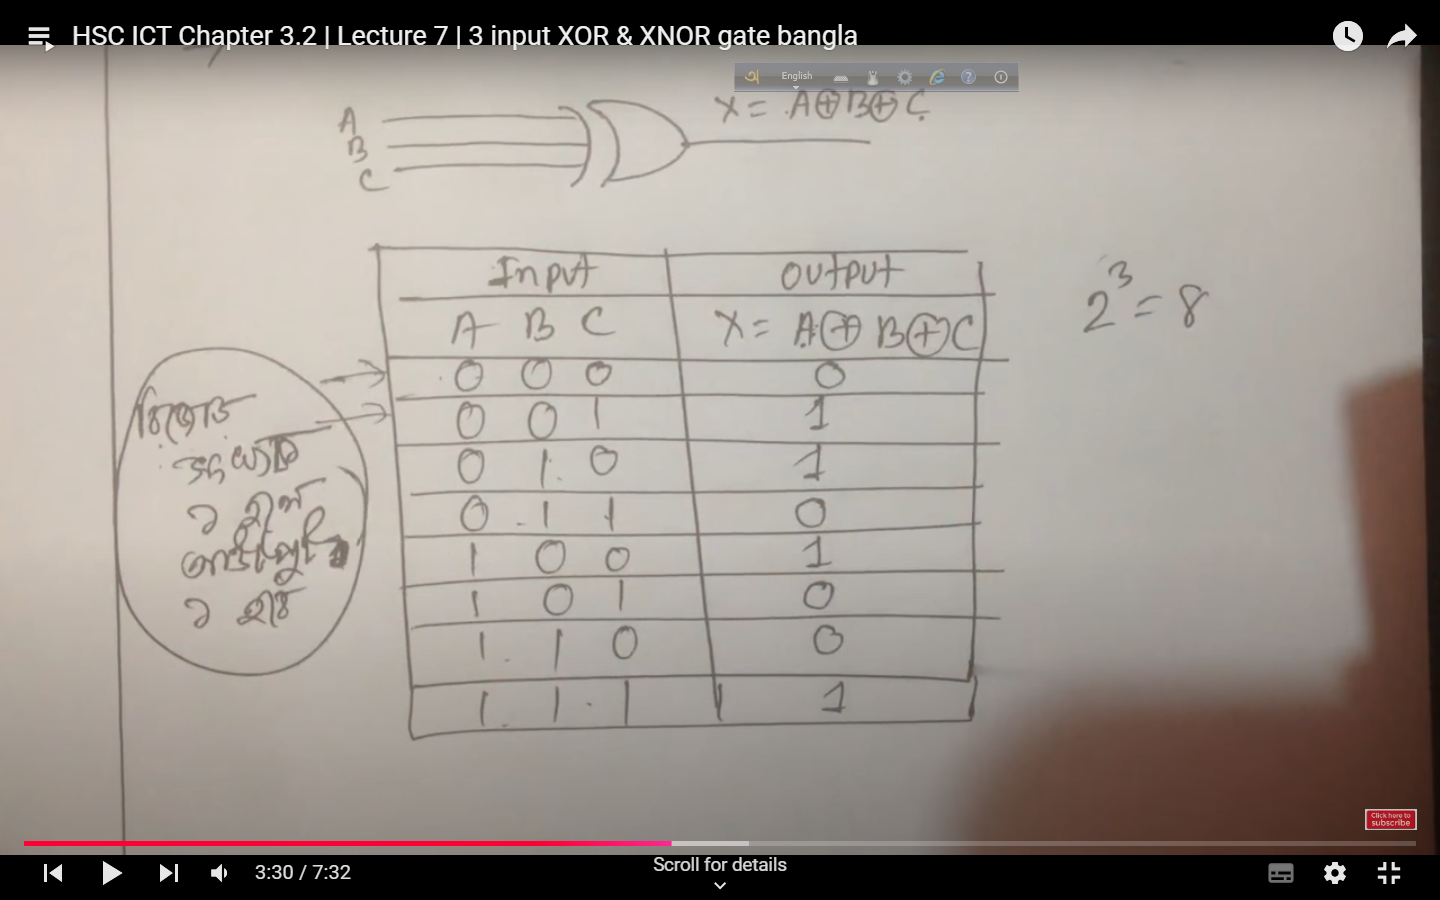 HSC ICT Chapter 3.2 | Lecture 7 | 3 input XOR & XNOR gate bangla
অ English
A
B
C
X = A⊕B⊕C
Input Output
A B C X = A⊕B⊕C
0 0 0 0
0 0 1 1
0 1 0 1
0 1 1 0
1 0 0 1
1 0 1 0
1 1 0 0
1 1 1 1
2³ = 8
বিজোড়
সংখ্যক
১ হলে
আউটপুট
১ হবে
Click here to
subscribe
3:30 / 7:32
Scroll for details